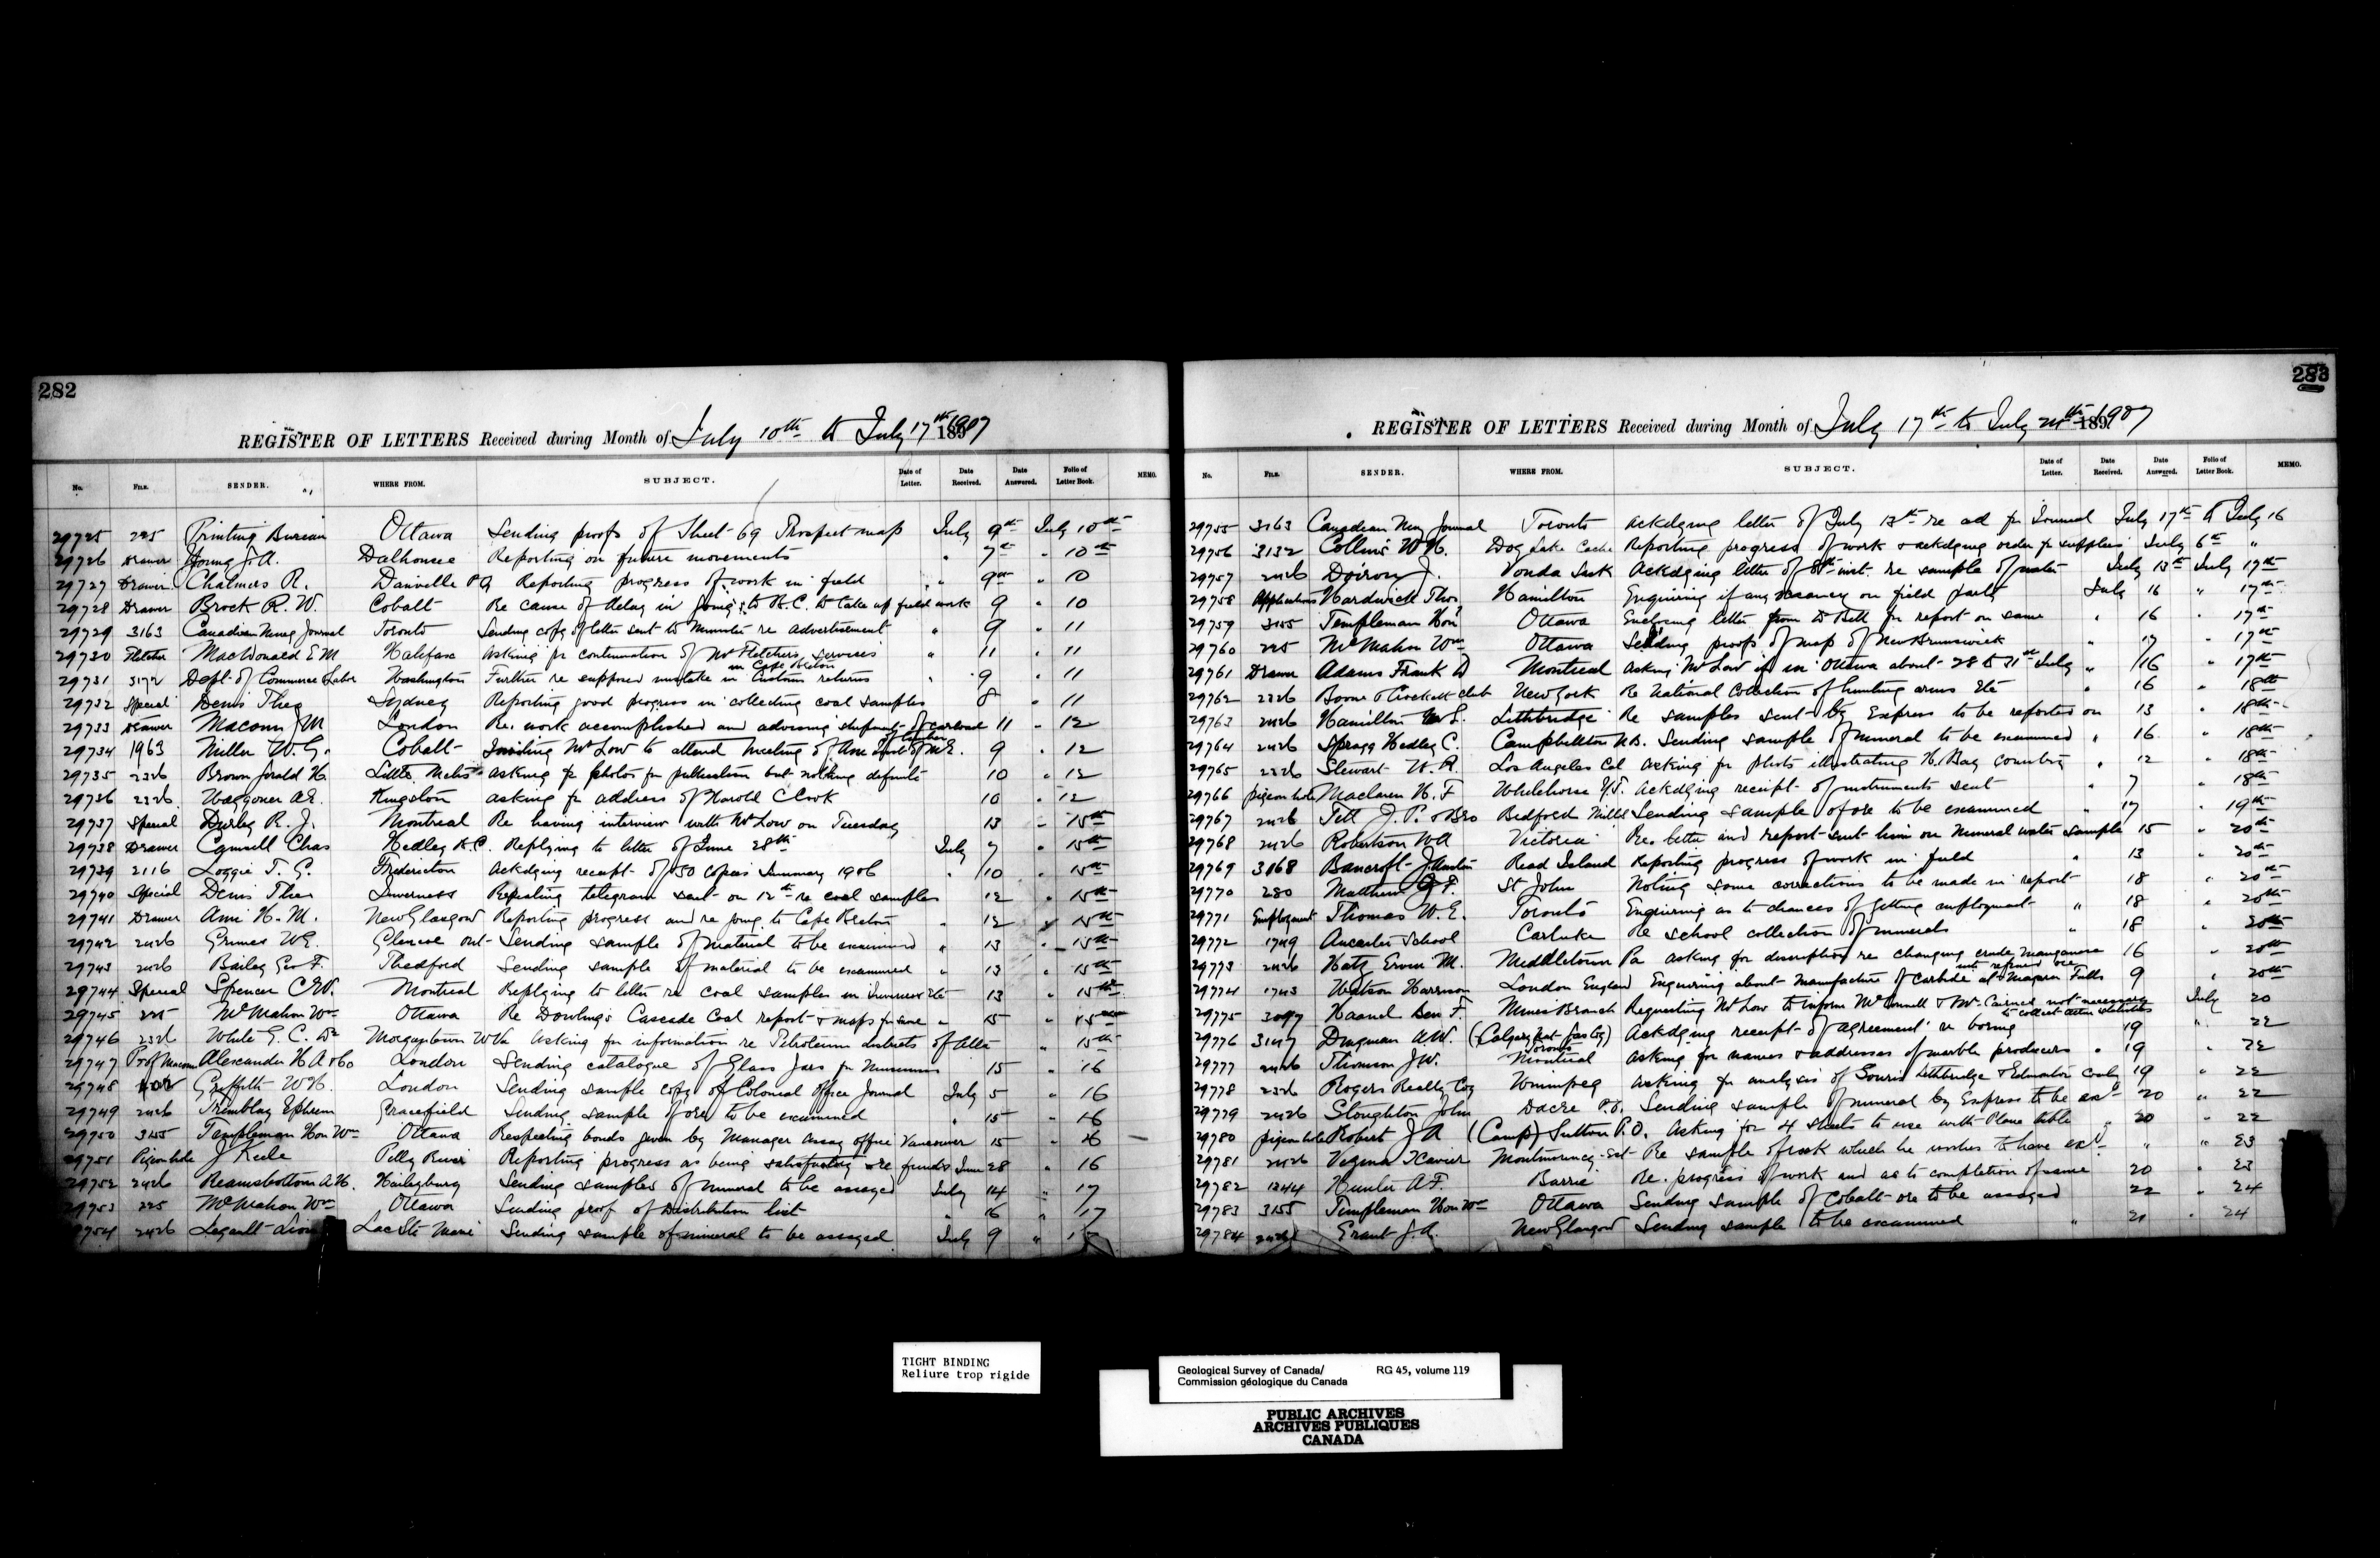 282
REGISTER OF LETTERS Received during Month of July 10th to July 17th 1907
No. FILE. SENDER. WHERE FROM. SUBJECT. Date of Letter. Date Received. Date Answered. Folio of Letter Book. MEMO.
29725 225 Printing Bureau Ottawa Sending proofs of Sheet 69 Prospect map July 9th July 10th
29726 Drawer Young J. A. Dalhousie Reporting on future movements " 7th " 10th
29727 Drawer Chalmers R. Danville P Q Reporting progress of work in field " 9th " 10
29728 Drawer Brock R. W. Cobalt Re cause of delay in going to B.C. to take up field work 9 " 10
29729 3163 Canadian Mining Journal Toronto Sending copy of letter sent to Minister re advertisement " 9 " 11
29730 Fletcher MacDonald E M Halifax Asking for continuation of Mr Fletchers services in Cape Breton " 11 " 11
29731 3172 Dept. of Commerce & Labor Washington Further re supposed mistake in Customs returns " 9 " 11
29732 Special Denis Theo Sydney Reporting good progress in collecting coal samples 8 " 11
29733 Drawer Macoun J M London Re. work accomplished and advising shipment of carload of lumber 11 " 12
29734 1963 Miller W. G. Cobalt Inviting Mr Low to attend meeting of Am Inst of M E. 9 " 12
29735 2326 Brown Gerald H. Little Metis Asking for photos for publication but nothing definite 10 " 12
29736 2326 Waggoner A E. Kingston Asking for address of Harold C Cook 10 " 12
29737 Special Durley R. J. Montreal Re having interview with Mr Low on Tuesday 13 " 15th
29738 Drawer Camsell Chas Hedley B.C. Replying to letter of June 28th July 7 " 15th
29739 2116 Loggie T. G. Fredericton Ackdging receipt of 150 copies Summary 1906 " 10 " 15th
29740 Special Denis Theo Inverness Repeating telegram sent on 12th re coal samples 12 " 15th
29741 Drawer Ami H. M. New Glasgow Reporting progress and re going to Cape Breton " 12 " 15th
29742 2426 Grimes W E. Glencoe Ont Sending sample of material to be examined " 13 " 15th
29743 2426 Bailey Geo F. Thedford Sending sample of material to be examined " 13 " 15th
29744 Special Spencer C W. Montreal Replying to letter re coal samples in Inverness etc 13 " 15th
29745 225 McMahon Wm Ottawa Re Dowling's Cascade Coal report & maps for same " 15 " 15th
29746 2326 White G. C. Dr Morgantown W Va Asking for information re Petroleum districts of Alta " 15th
29747 Prof Macoun Alexander H A & Co London Sending catalogue of Glass Jars for Museums 15 " 16
29748 Griffith W H. London Sending sample copy of Colonial Office Journal July 5 " 16
29749 2426 Tremblay Ephrem Gracefield Sending sample of ore to be examined " 15 " 16
29750 3155 Templeman Hon Wm Ottawa Respecting bonds given by Manager assay office Vancouver 15 " 16
29751 Pigeon hole J Keele Pelly River Reporting progress as being satisfactory & re funds June 28 " 16
29752 2426 Reamsbottom A H. Haileybury Sending samples of mineral to be assayed July 14 " 17
29753 225 McMahon Wm Ottawa Sending proof of Distribution list " 16 " 17
29754 2426 Legault Lac Ste Marie Sending sample of mineral to be assayed July 9 "
283
REGISTER OF LETTERS Received during Month of July 17th to July 24th 1907
No. FILE. SENDER. WHERE FROM. SUBJECT. Date of Letter. Date Received. Date Answered. Folio of Letter Book. MEMO.
29755 3163 Canadian Min Journal Toronto Ackdging letter of July 13th re ad for Journal July 17th to July 16
29756 3132 Collins W H. Dog Lake Cache Reporting progress of work & ackdging order for supplies July 6th "
29757 2426 Doiron J. Vonda Sask Ackdging letter of 8th inst. re sample of water July 13th July 17th
29758 Applications Hardwick Thos. Hamilton Enquiring if any vacancy on field party July 16 " 17th
29759 3155 Templeman Hon Ottawa Enclosing letter from Dr Bell for report on same " 16 " 17th
29760 225 McMahon Wm Ottawa Sending proofs of map of New Brunswick " 17 " 17th
29761 Drawer Adams Frank D Montreal Asking Mr Low if in Ottawa about 28 to 31st July " 16 " 17th
29762 2326 Boone & Crockett Club New York Re National Collection of hunting arms etc " 16 " 18th
29763 2426 Hamilton W S. Lethbridge Re samples sent by Express to be reported on 13 " 18th
29764 2426 Spragg Hedley C. Campbellton N B. Sending sample of mineral to be examined " 16 " 18th
29765 2326 Stewart W. R. Los Angeles Cal Asking for photos illustrating H. Bay country " 12 " 18th
29766 pigeon hole Maclaren H. F Whitehorse Y.T. Ackdging receipt of instruments sent " 7 " 18th
29767 2426 Tett J. P. & Bro Bedford Mills Sending sample of ore to be examined " 17 " 19th
29768 2426 Robertson W A Victoria Re. letter and report sent him on mineral water sample 15 " 20th
29769 3168 Bancroft J. Austin Read Island Reporting progress of work in field " 13 " 20th
29770 280 Matthew G F. St John Noting some corrections to be made in report 18 " 20th
29771 Employment Thomas W. E. Toronto Enquiring as to chances of getting employment " 18 " 20th
29772 1749 Ancaster School Carluke Re school collection of minerals " 18 " 20th
29773 2426 Hatz Erwin M. Middletown Pa Asking for description re changing crude manganese into refined ore 16 " 20th
29774 1743 Watson Harrison London England Enquiring about manufacture of Carbide at Niagara Falls 9 " 20th
29775 3097 Haanel Ben F. Mines Branch Requesting Mr Low to inform McConnell & Mr Cairnes not necessary to collect statistics July 20
29776 3147 Dingman A.W. (Calgary Nat. Gas Coy) Ackdging receipt of agreement re boring 19 " 22
29777 2426 Thomson J.W. Toronto Montreal Asking for names & addresses of marble producers " 19 " 22
29778 2326 Rogers Realty Coy Winnipeg Asking for analysis of Souris Lethbridge & Edmonton Coals 19 " 22
29779 2426 Stoughton John Dacre P.O. Sending sample of mineral by Express to be exd 20 " 22
29780 pigeon hole Robert J A (Camp) Sutton P.O. Asking for 4 sheets to use with Plane table " 20 " 22
29781 2426 Vezina Xavier Montmorency Re sample of rock which he wishes to have exd " " 23
29782 1344 Hunter A F. Barrie Re. progress of work and as to completion of same 20 " 23
29783 3155 Templeman Hon Wm Ottawa Sending sample of Cobalt ore to be assayed 22 " 24
29784 2426 Grant J. A. New Glasgow Sending sample to be examined " 21 " 24
TIGHT BINDING
Reliure trop rigide
Geological Survey of Canada/ RG 45, volume 119
Commission géologique du Canada
PUBLIC ARCHIVES
ARCHIVES PUBLIQUES
CANADA